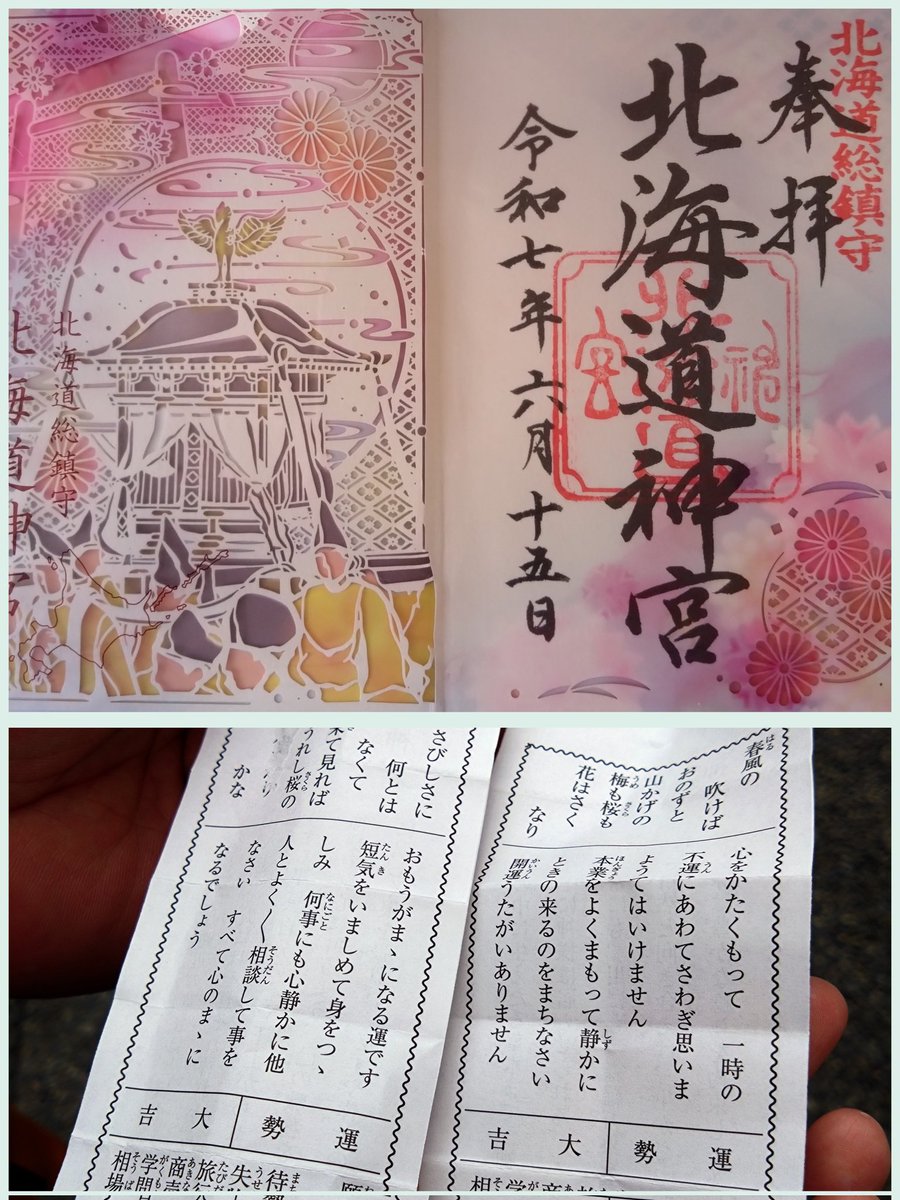 北海道総鎮守
奉拝
北海道神宮
令和七年六月十五日
北海道総鎮守
北海道神宮
春風の
吹けば
おのずと
山かげの
梅も桜も
花はさく
なり
心をかたくもって 一時の
不運にあわてさわぎ思いま
ようてはいけません
本業をよくまもって静かに
ときの来るのをまちなさい
開運うたがいありません
運勢
大吉
さびしさに
何とは
なくて
来て見れば
うれし桜の
かな
おもうがまゝになる運です
短気をいましめて身をつゝ
しみ 何事にも心静かに他
人とよく〳〵相談して事を
なさい すべて心のまゝに
なるでしょう
運勢
大吉
願
待
失
旅行
商売
学問
相場